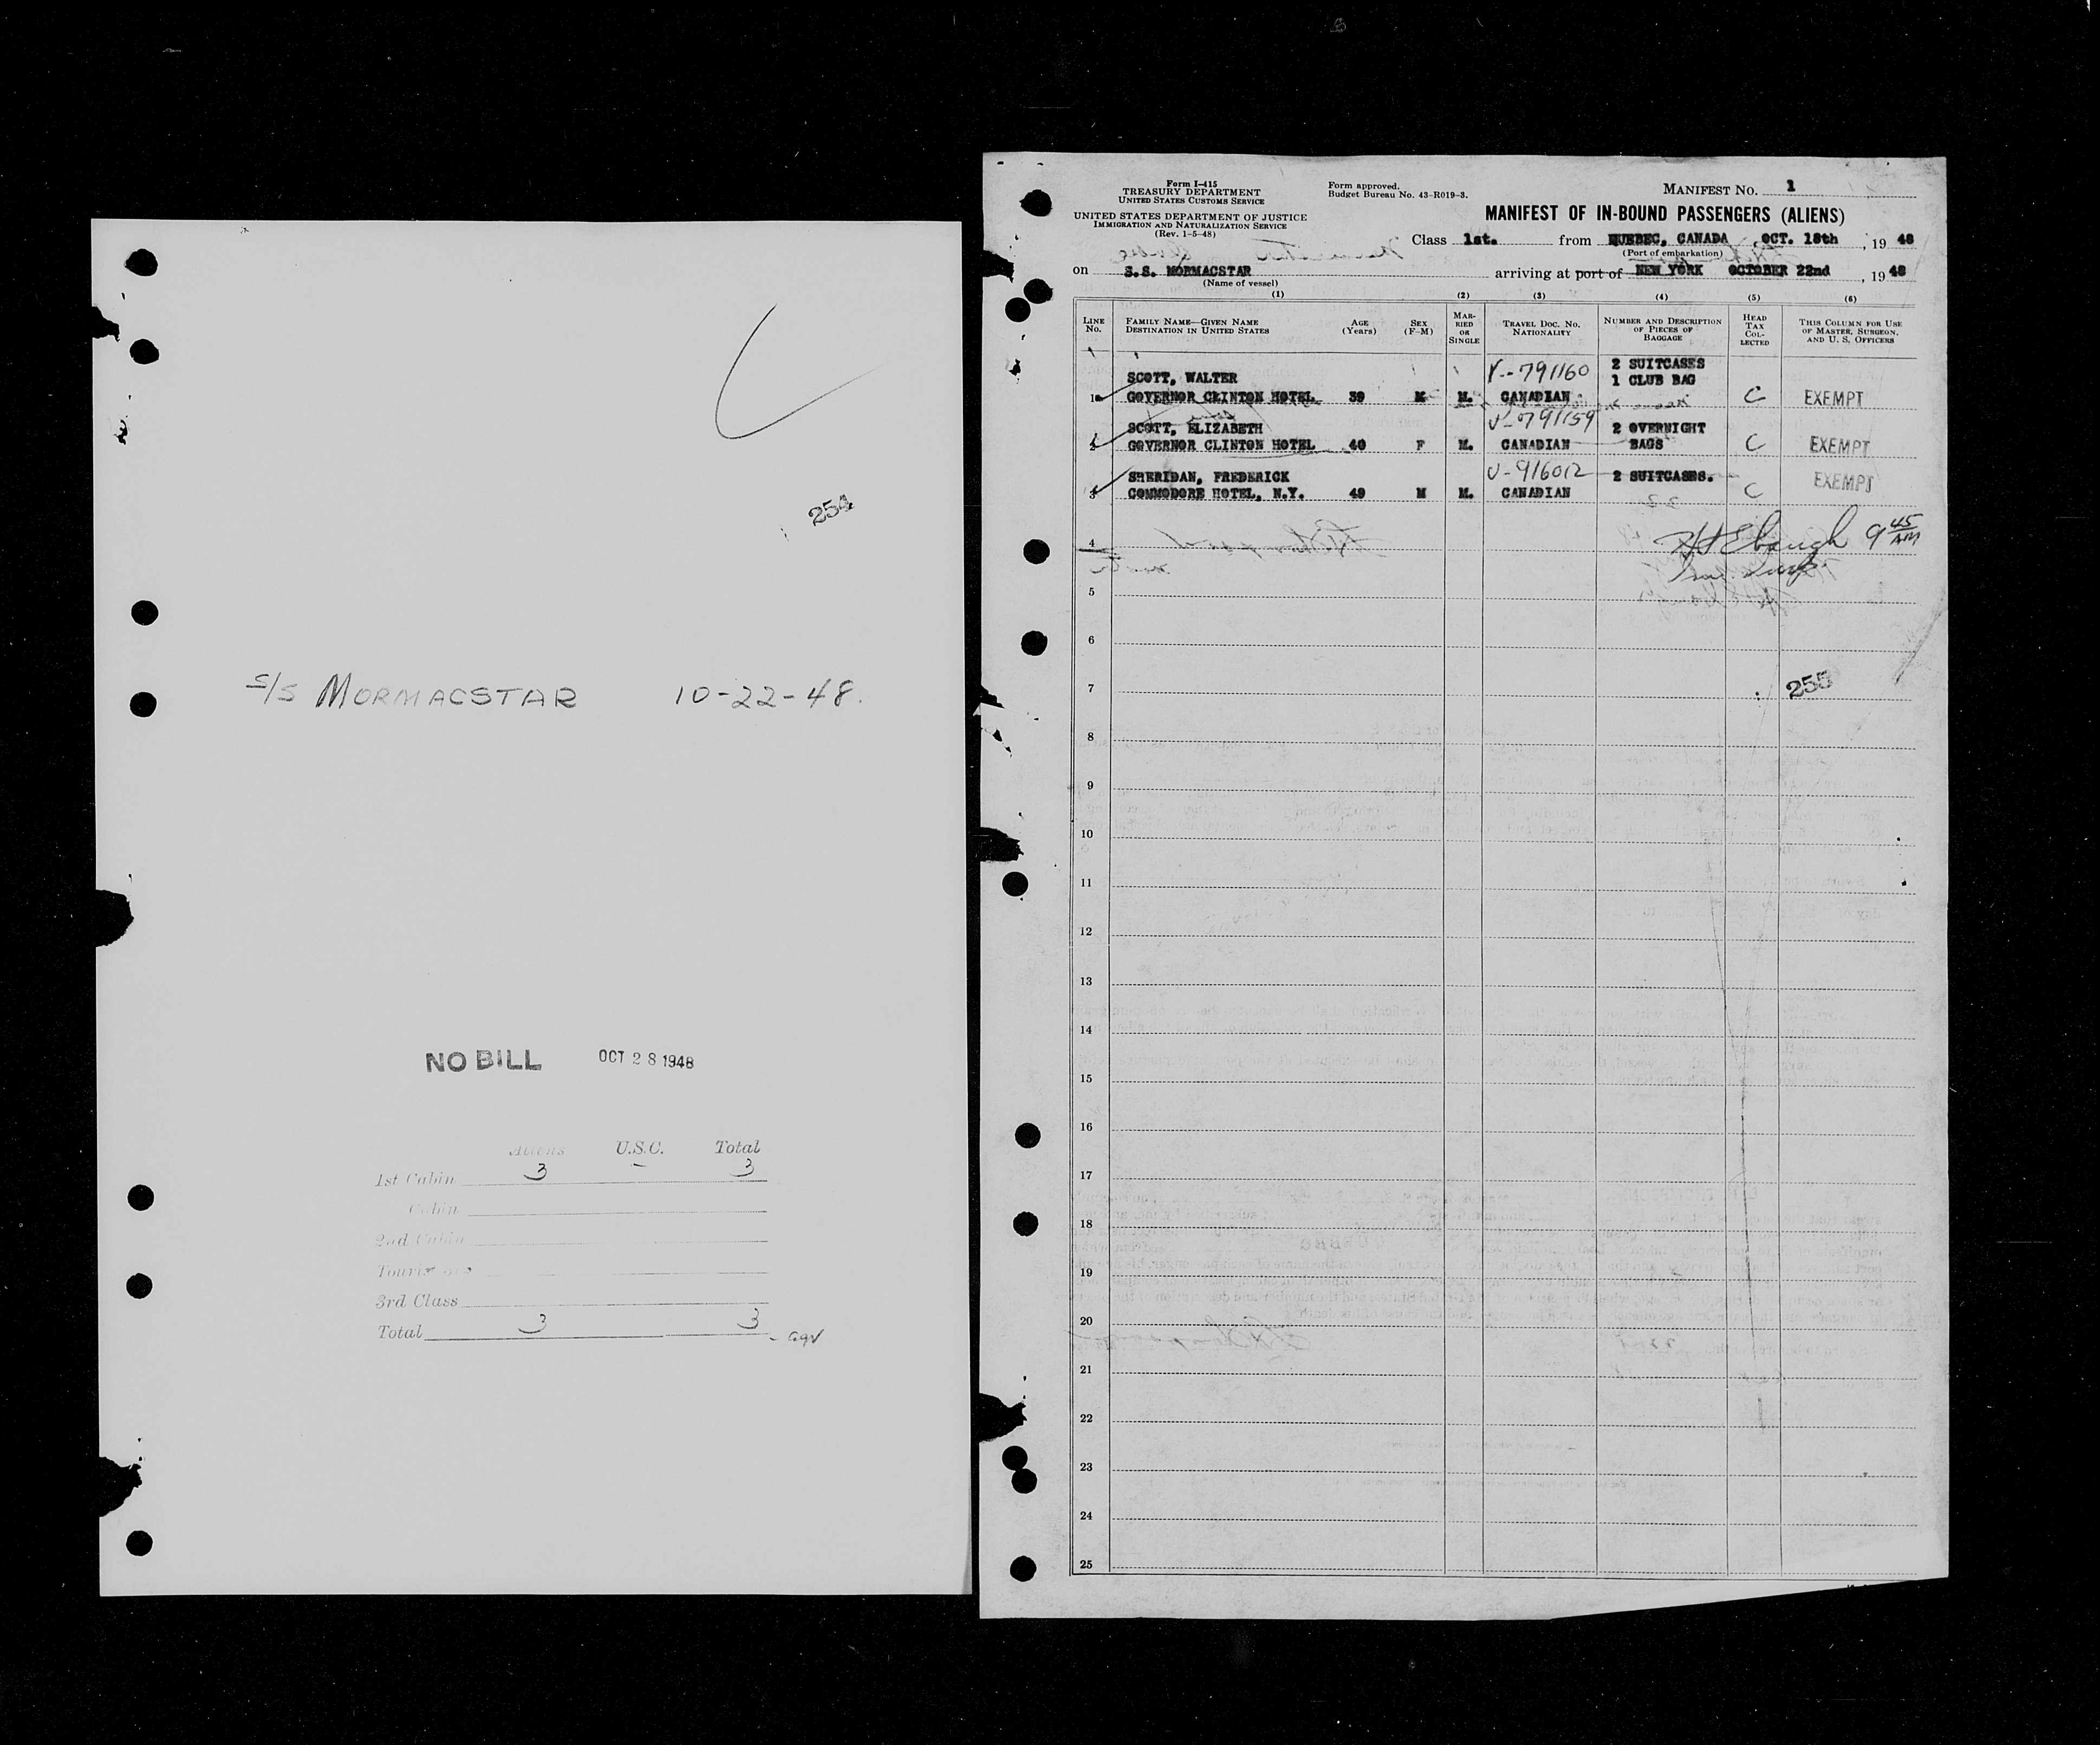 254
S/S MORMACSTAR 10-22-48.
NO BILL OCT 28 1948
Aliens U.S.C. Total
1st Cabin 3 – 3
Cabin
2nd Cabin
3rd Class
Total 3 3 - agv
Form I-415
TREASURY DEPARTMENT
UNITED STATES CUSTOMS SERVICE
UNITED STATES DEPARTMENT OF JUSTICE
IMMIGRATION AND NATURALIZATION SERVICE
(Rev. 1-5-48)
Form approved.
Budget Bureau No. 43-R019-3.
MANIFEST NO. 1
MANIFEST OF IN-BOUND PASSENGERS (ALIENS)
Class 1st. from QUEBEC, CANADA, OCT. 18th, 19 48
(Port of embarkation)
on S.S. MORMACSTAR arriving at port of NEW YORK OCTOBER 22nd, 19 48
(Name of vessel)
(1) (2) (3) (4) (5) (6)
LINE No. FAMILY NAME—GIVEN NAME DESTINATION IN UNITED STATES AGE (Years) SEX (F-M) MARRIED OR SINGLE TRAVEL DOC. NO. NATIONALITY NUMBER AND DESCRIPTION OF PIECES OF BAGGAGE HEAD TAX COLLECTED THIS COLUMN FOR USE OF MASTER, SURGEON, AND U. S. OFFICERS
2 SUITCASES
SCOTT, WALTER V--791160 1 CLUB BAG
1 GOVERNOR CLINTON HOTEL 39 M M. CANADIAN C EXEMPT
SCOTT, ELIZABETH V-791159 2 OVERNIGHT
2 GOVERNOR CLINTON HOTEL 40 F M. CANADIAN BAGS C EXEMPT
SHERIDAN, FREDERICK V-916012 2 SUITCASES.
3 COMMODORE HOTEL, N.Y. 49 M M. CANADIAN C EXEMPT
4 Ebaugh 9 45 AM
5
6
7 255
8
9
10
11
12
13
14
15
16
17
18
19
20
21
22
23
24
25